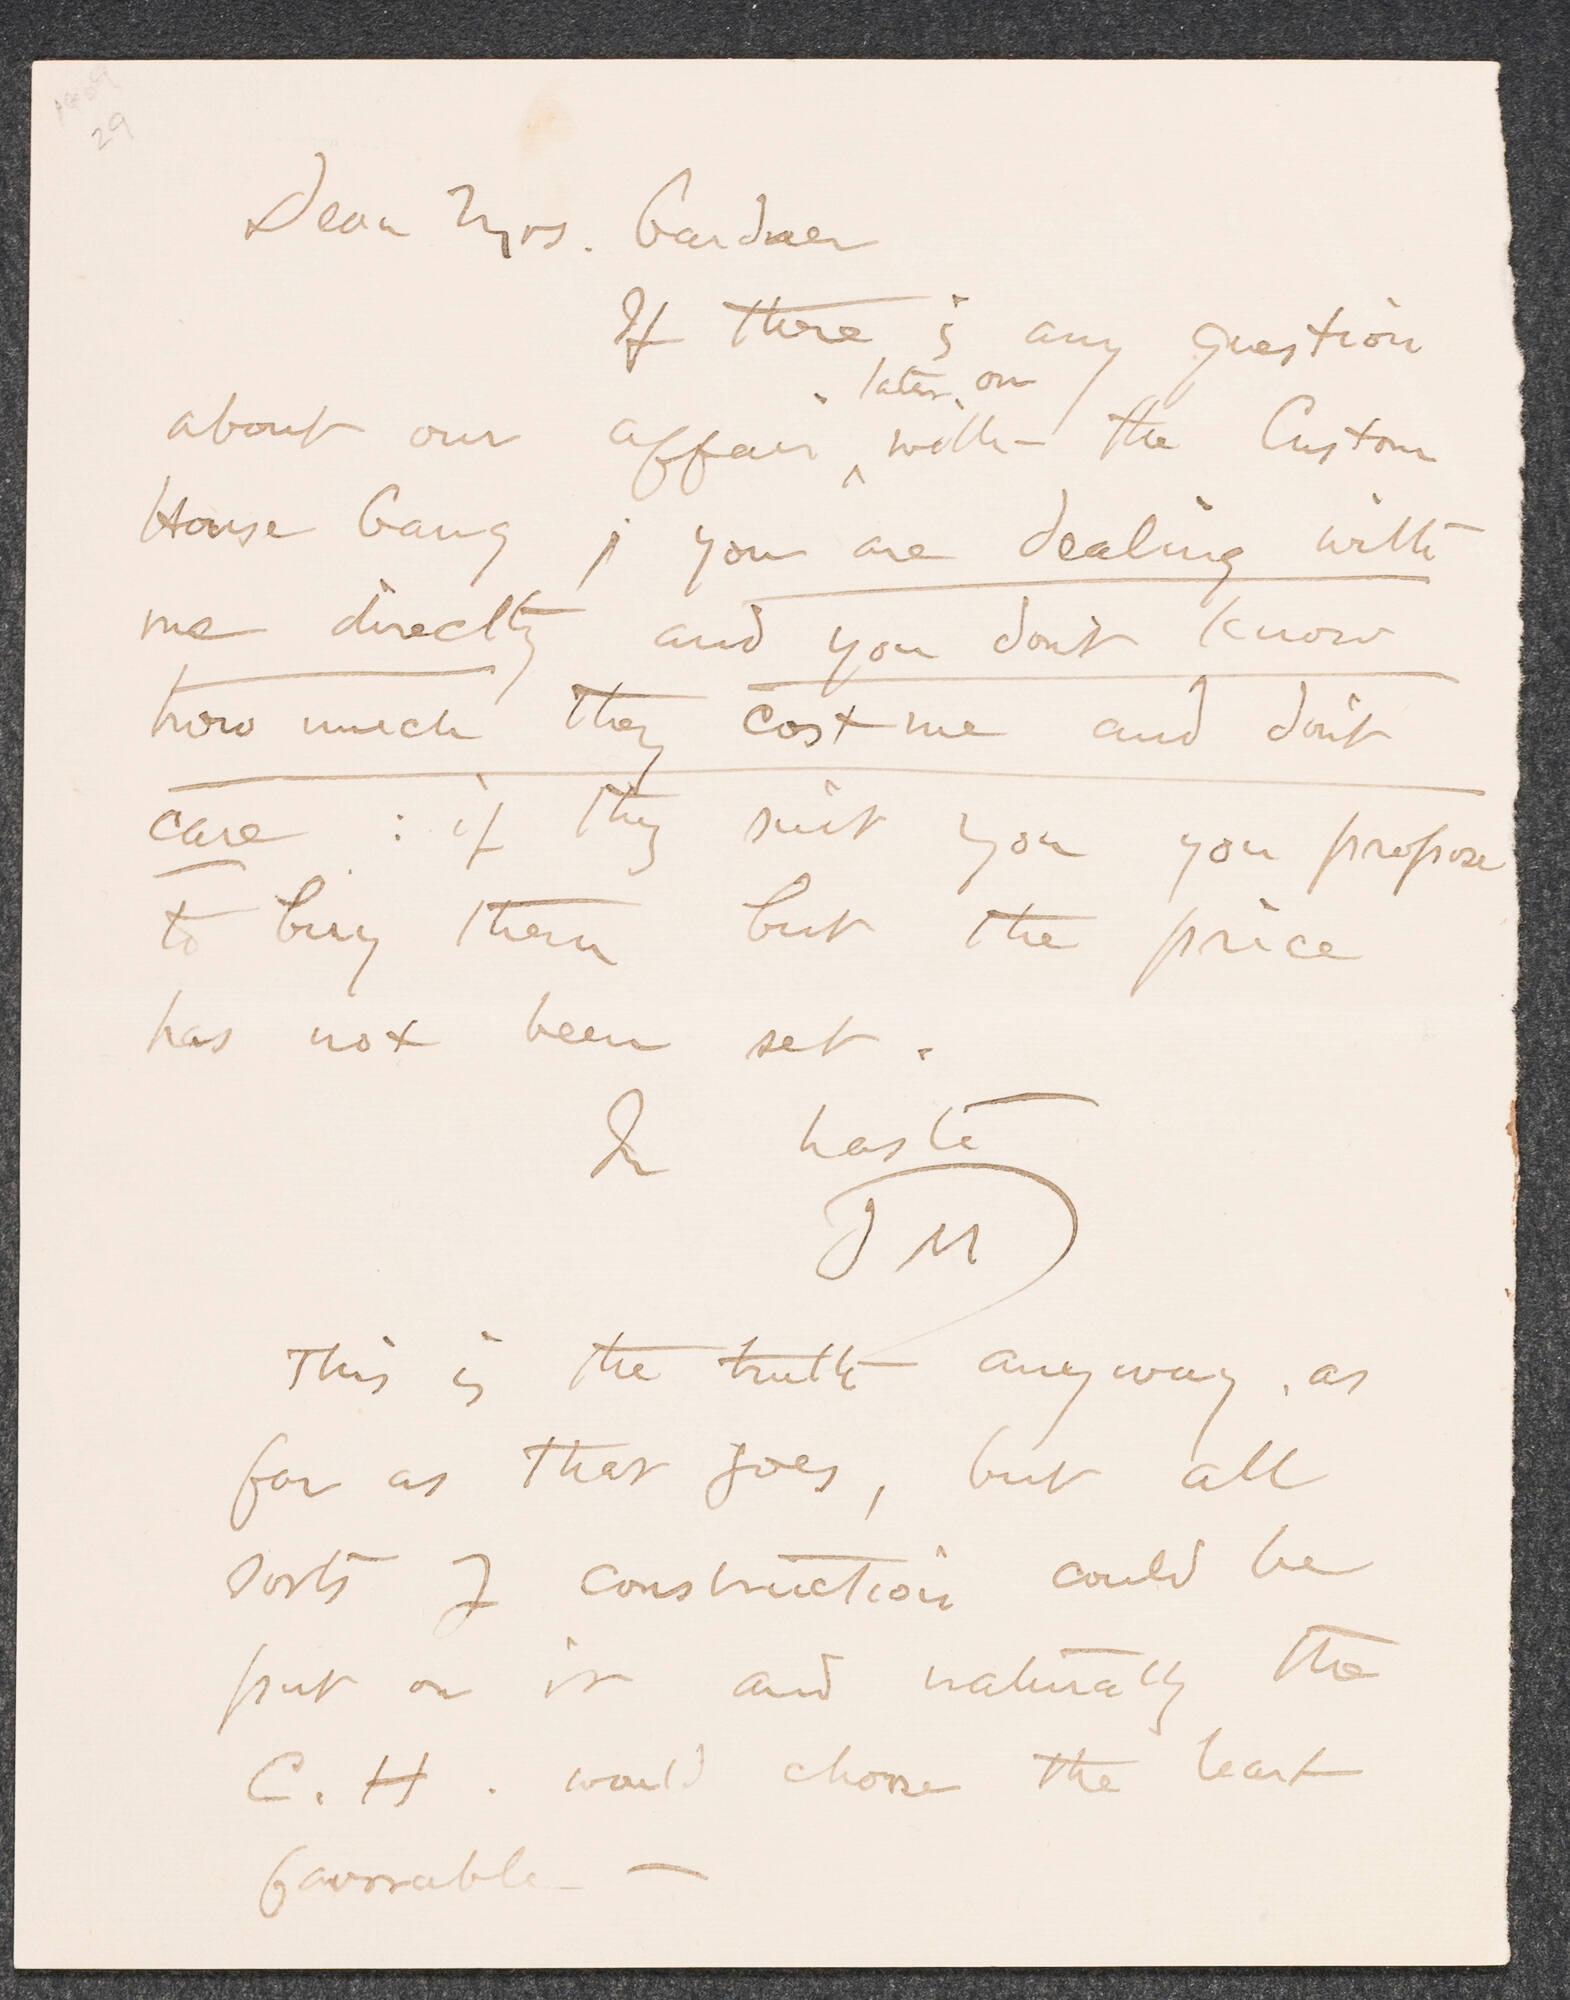 29
Dear Mrs. Gardner
If there is any question
later on
about our affair with the Custom
House Gang; you are dealing with
me directly and you don't know
how much they cost me and don't
care: if they suit you you propose
to buy them but the price
has not been set.
In haste
JM
This is the truth anyway, as
far as that goes, but all
sorts of construction could be
put on it and naturally the
C. H. would choose the least
favorable —